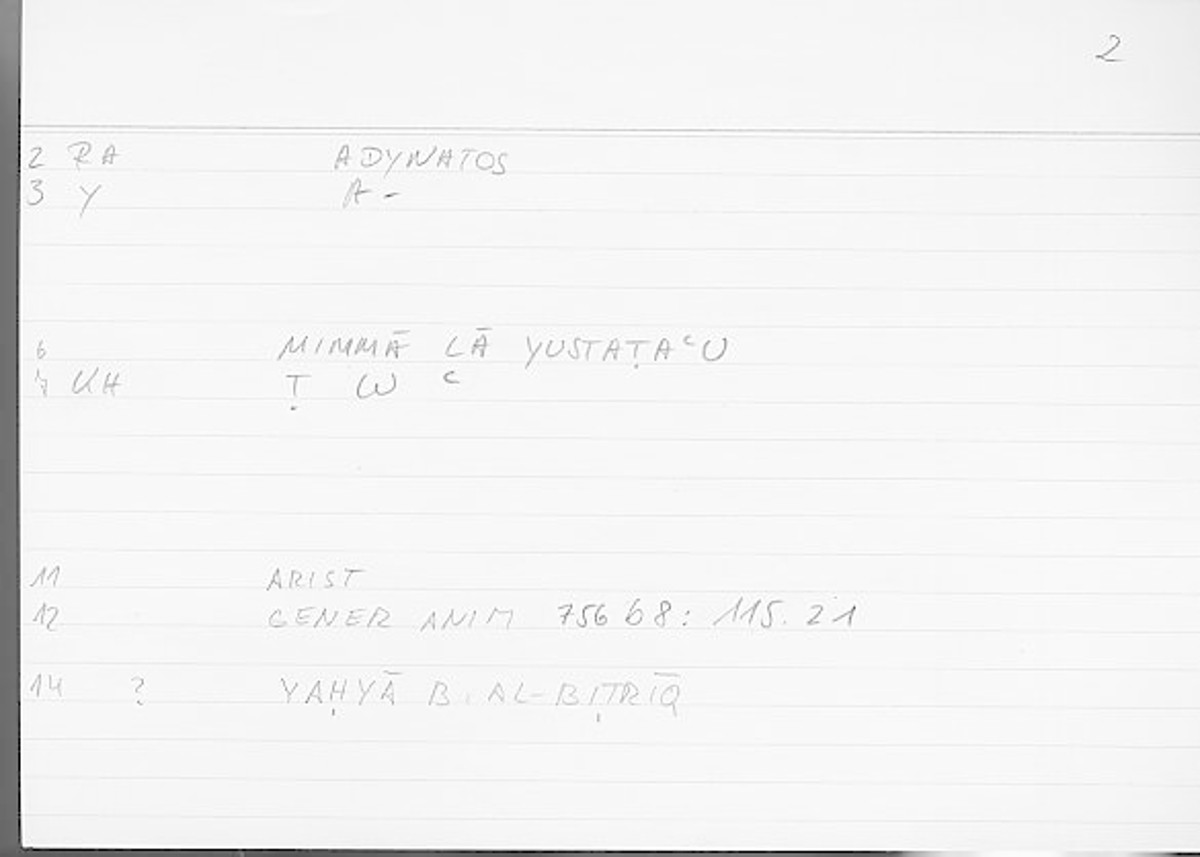 2
2 RA ADYNATOS
3 Y A-
6 MIMMĀ LĀ YUSTAṬAʿU
7 KH Ṭ W ʿ
11 ARIST
12 GENER ANIM 756 b 8: 115.21
14 ? YAḤYĀ B. AL-BIṬRĪQ